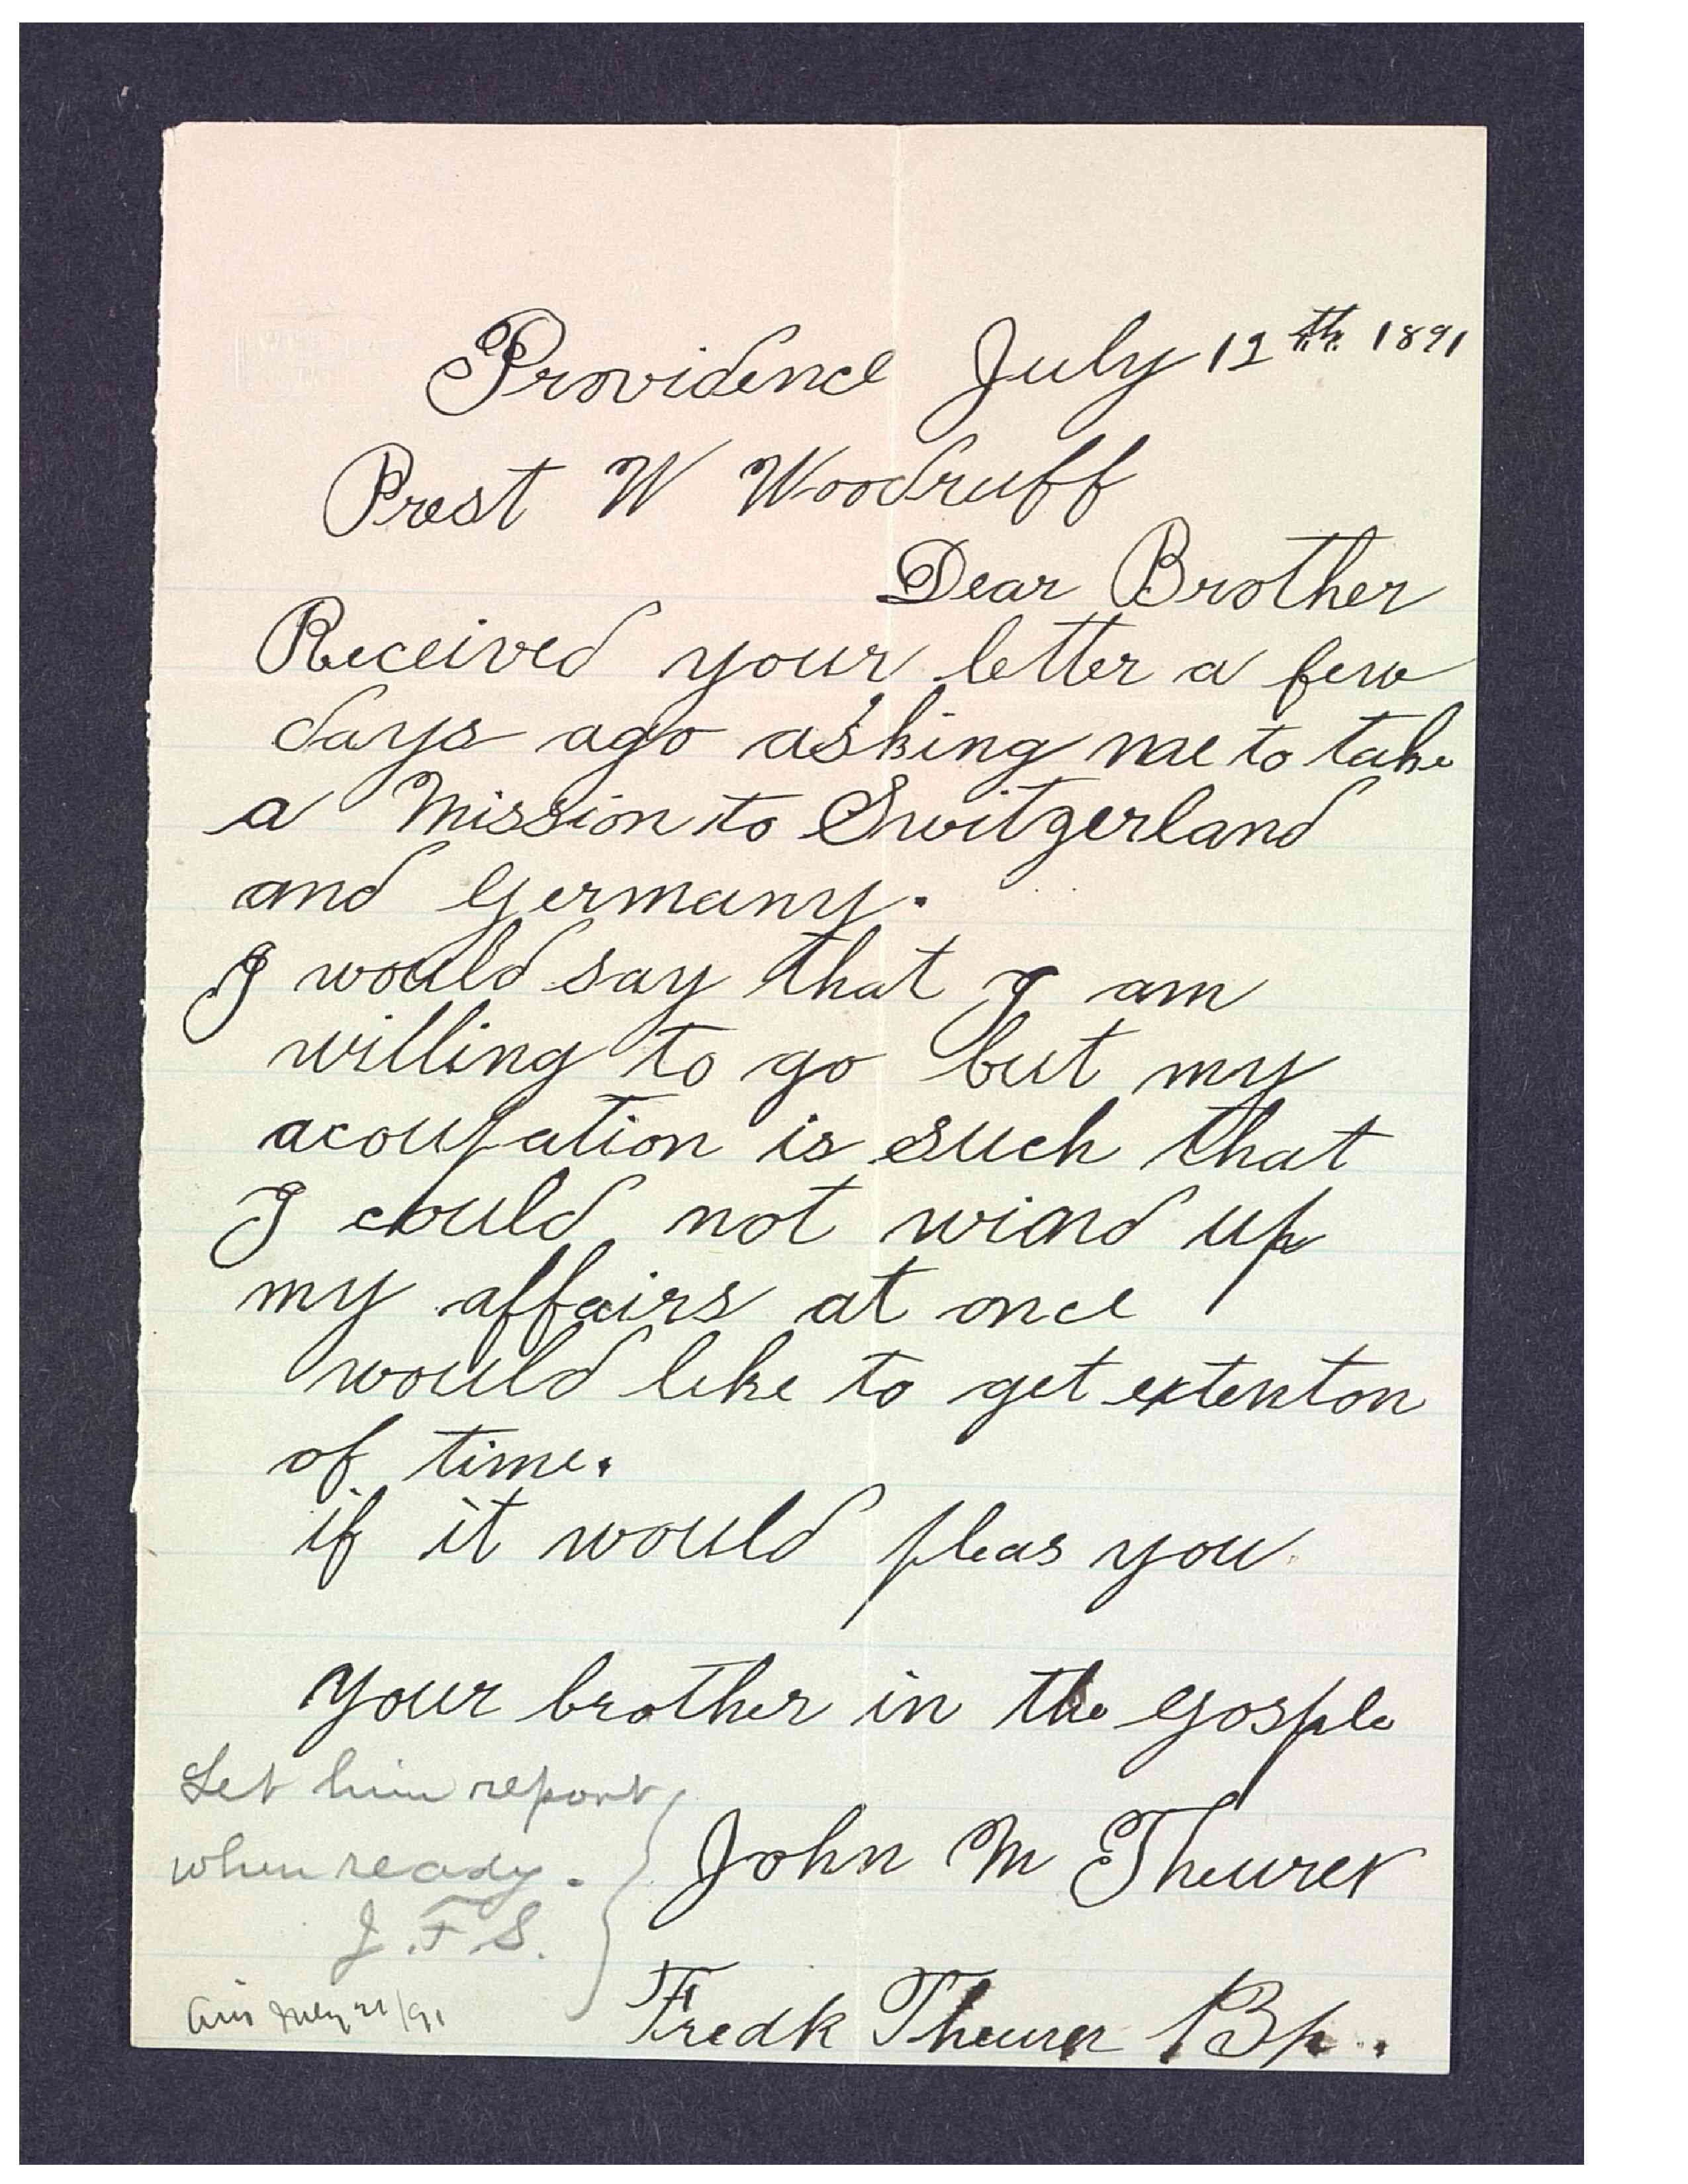 Providence July 12th 1891
Prest W Woodruff
Dear Brother
Received your letter a few
days ago asking me to take
a Mission to Switzerland
and Germany.
I would say that I am
willing to go but my
acoupation is such that
I could not wind up
my affairs at once
would like to get extenton
of time.
if it would pleas you
your brother in the gosple
Let him report
when ready.
J. F. S.
John M Theurer
Fredk Theurer Bp.
July 21/91